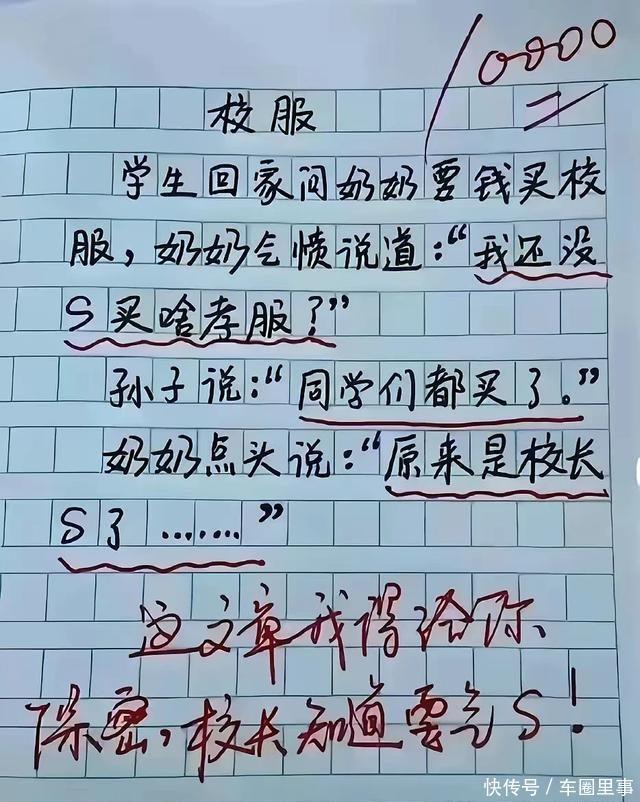 10000
校服
学生回家问奶奶要钱买校
服，奶奶气愤说道：“我还没
S买啥孝服？”
孙子说：“同学们都买了。”
奶奶点头说：“原来是校长
S了……”
这文章我得给你
保密，校长知道要气S！
快传号／车圈里事